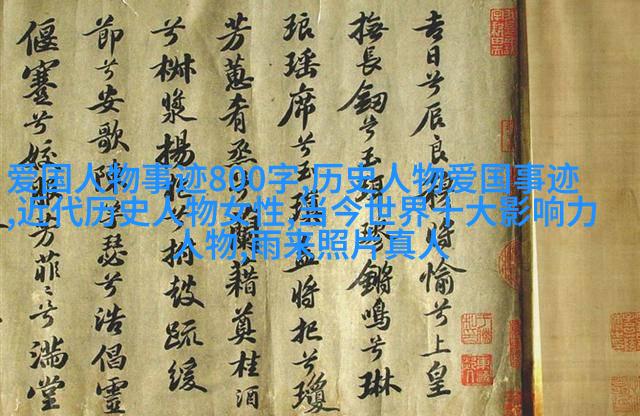 爱国人物事迹800字,历史人物爱国事迹
,近代历史人物女性,当今世界十大影响力
人物,雨来照片真人
吉日兮辰良穆將愉兮上皇
撫長劔兮玉珥璆鏘鳴兮琳
琅瑤席兮玉瑱盍將把兮瓊
芳蕙肴烝兮蘭藉奠桂酒
兮椒漿揚枹兮拊鼓疏緩
節兮安歌陳竽瑟兮浩倡靈
偃蹇兮姣服芳菲〻兮滿堂